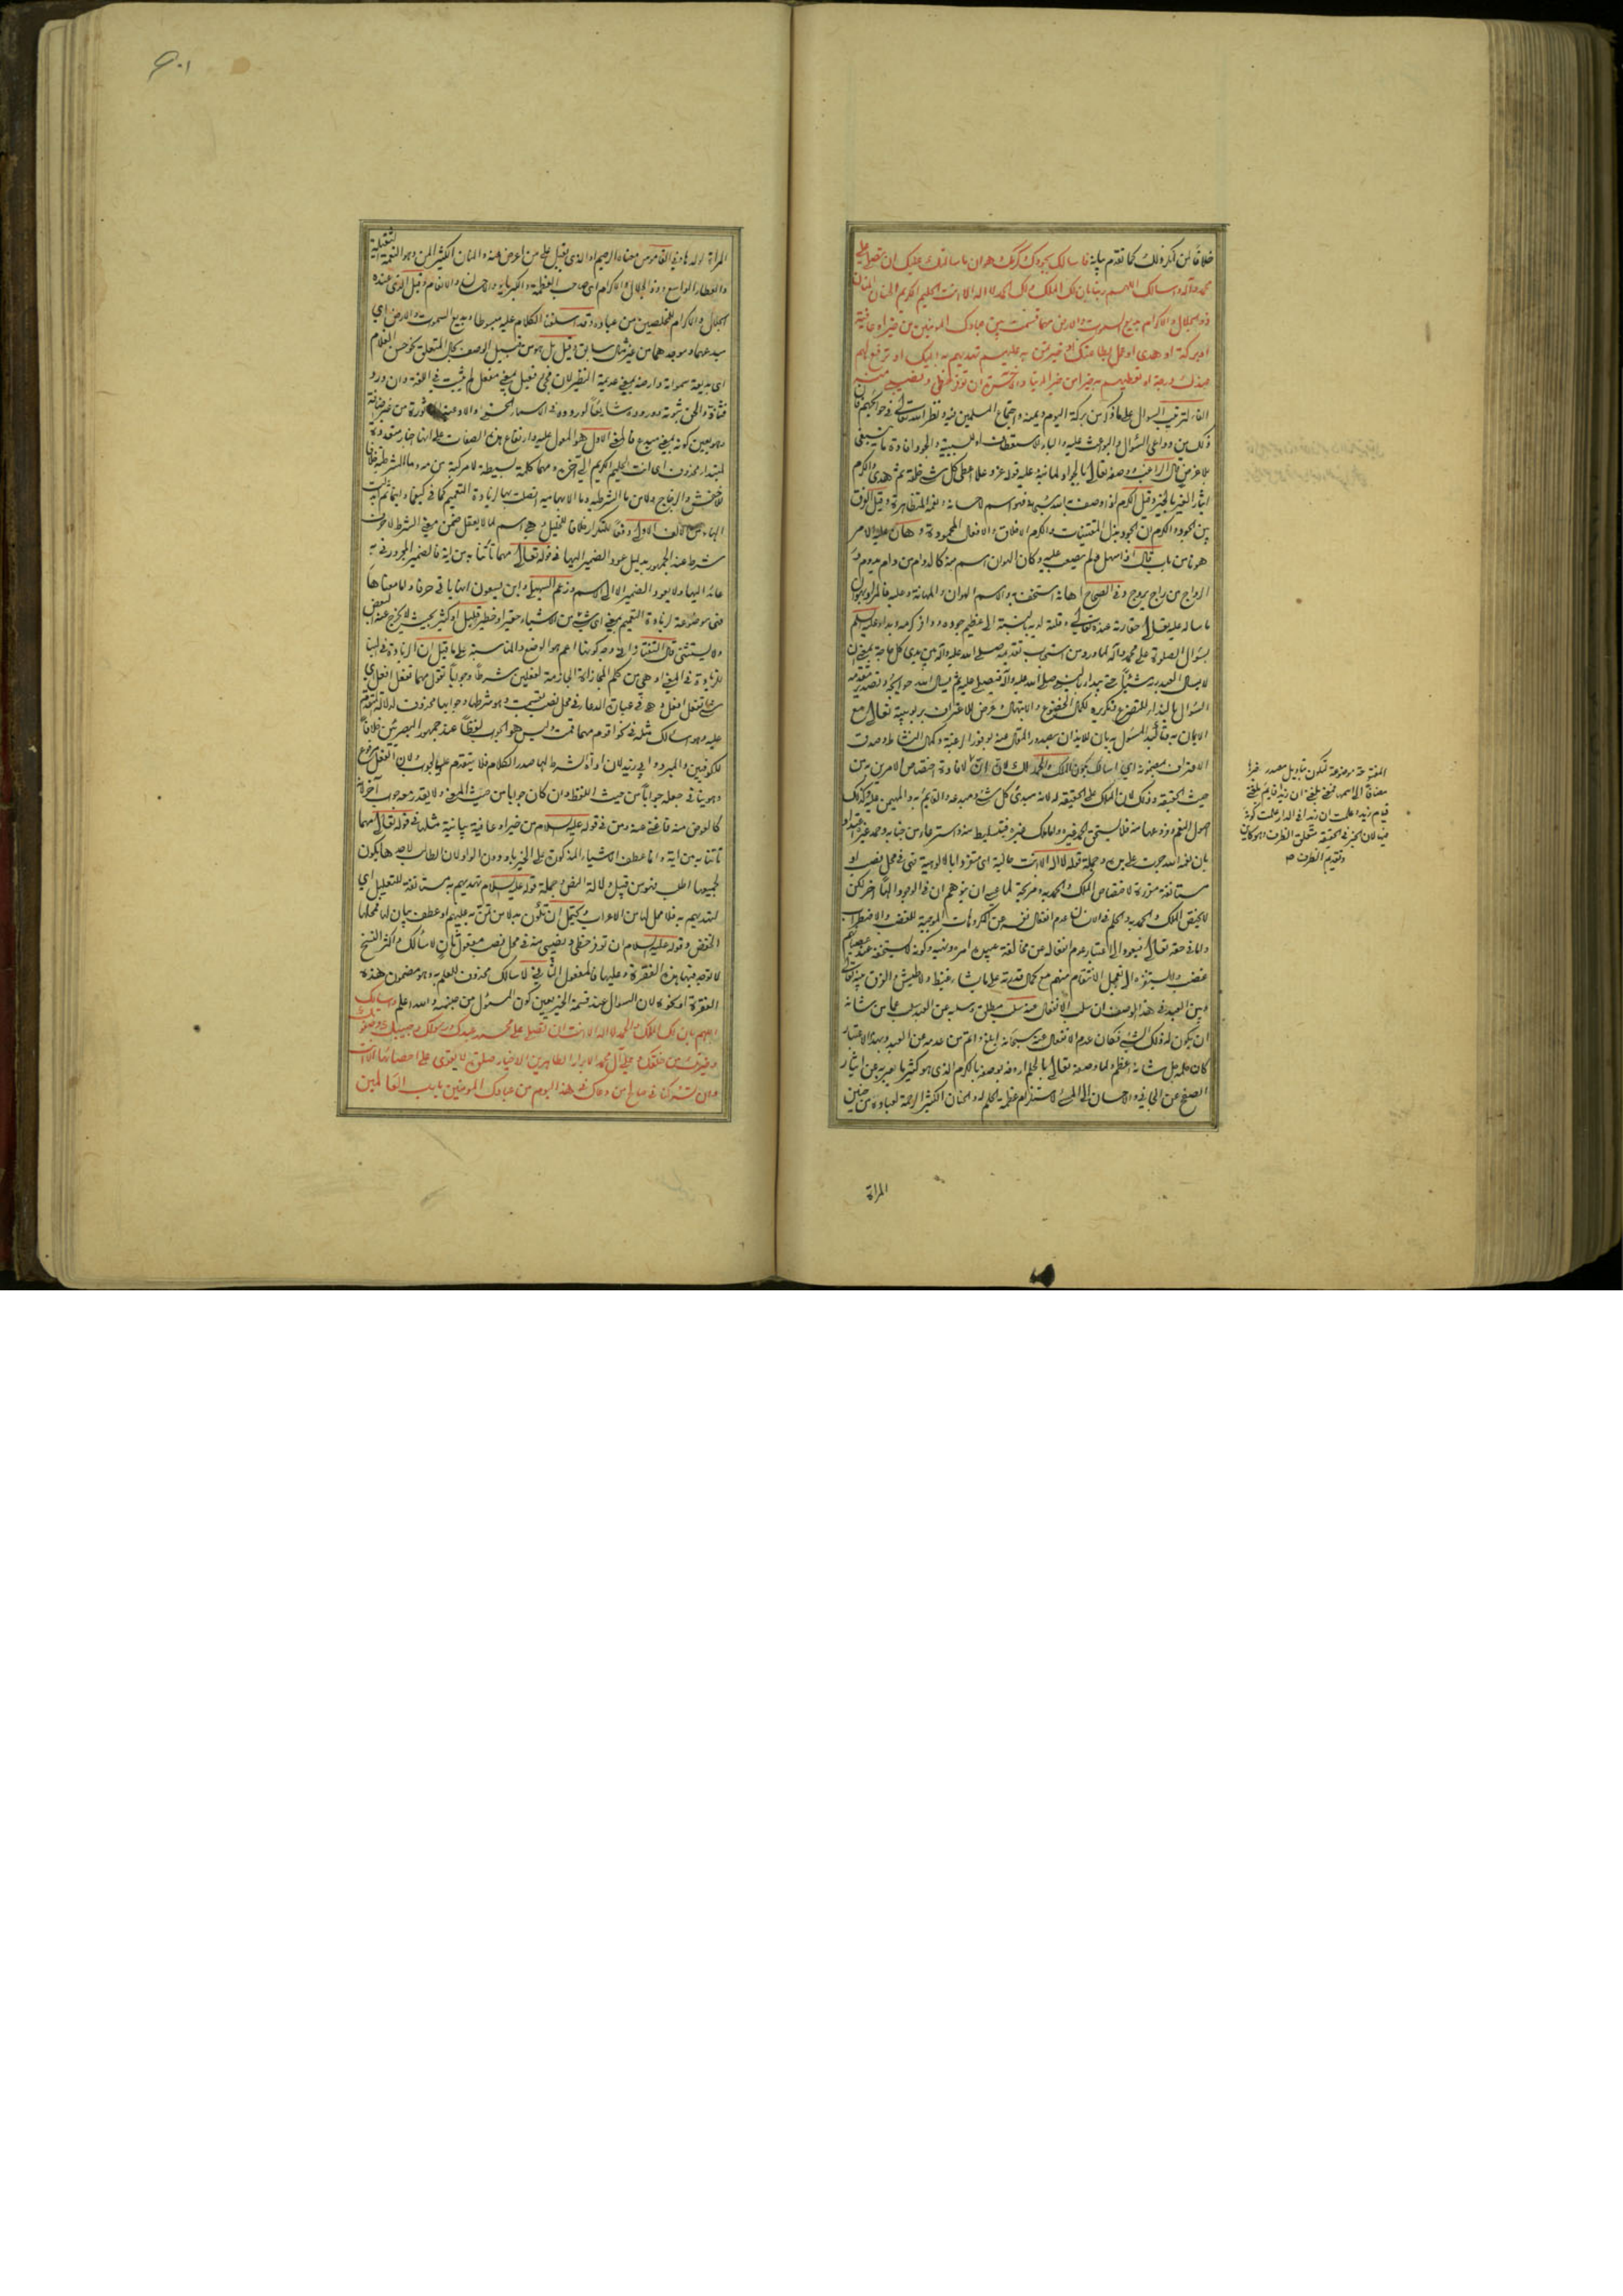 خلافا لمن انكر ذلك كما تقدم بيانه فاسالك بجودك وكرمك وهوان ما سالتك عليك ان تصلي على
محمد وآله واسالك اللهم ربنا بان لك الملك ولك الحمد لا اله الا انت الحليم الكريم الحنان المنان
ذو الجلال والاكرام بديع السموت والارض مهما قسمت بين عبادك المومنين من خير او عافية
او بركة او هدى او عمل بطاعتك او خير تمن به عليهم تهديهم به اليك او ترفع لهم
عندك درجة او تعطيهم به خيرا من خير الدنيا والاخرة ان توفر حظي ونصيبي منه
الفاء لترتيب السوال على ما ذكر من بركة اليوم ويمنه واجتماع المسلمين فيه ونظر الله تعالى في حوائجهم فان
ذلك من دواعي السؤال والبواعث عليه والباء للاستعطاف او للسببية والجود افادة ما ينبغي
لا لعوض قال الراغب ووصفه تعالى بالجواد لما نبه عليه قوله عز وعلا اعطى كل شيء خلقه ثم هدى والكرم
ايثار الغير بالخير وقيل الكرم اذا وصف الله به فهو اسم لاحسانه وانعامه المتظاهرة وقيل الفرق
بين الجود والكرم ان الجود بذل المقتنيات والكرم الاخلاق والافعال المحمودة وهان عليه الامر
هونا من باب قال اذا سهل فلم يصعب عليه وكان الهوان اسم منه كالدوام من دام يدوم و
الرواج من راج يروج وفي الصحاح اهانه استخف به والاسم الهوان والمهانة وعليه فالمراد بهوان
ما ساله عليه تعالى حقارته عنده تعالى وقلته لديه بالنسبة الى عظيم جوده ووافر كرمه وبدا عليه السلم
بسؤال الصلوة على محمد وآله لما ورد من استحباب تقديمه صلى الله عليه وآله بين يدي كل حاجة
لا يسال العبد ربه شيئا حتى يبدا بالنبي صلى الله عليه وآله فيصلي عليه ثم يسال الله حوائجه وتصدير
السؤال بالنداء للتضرع وتكريره لكمال الخضوع والابتهال وعرض للاعتراف بربوبيته تعالى مع
الايمان به وتاكيد المسئول به بان للايذان بصدور المقال عنه لوفور الرغبة وكمال النشاط وصدق
الاعتراف بمضمونه اي اسالك بكون الملك والحمد لك لان ان لافادة اختصاص الامرين به من
حيث الحقيقة وذلك لان الملك على الحقيقة له لانه مبدئ كل شيء ومبدعه والقائم به والمهيمن عليه وكذلك
اصول النعم وفروعها منه فلا يستحق الحمد غيره
بان نعمة الله جرت على يده وجملة قوله لا اله الا انت حالية اي متفردا بالالوهية فهي في محل نصب او
مستانفة مقررة لاختصاص الملك والحمد به ومزيحة لما عسى ان يتوهم ان في الوجود الها آخر لكن
لا يختص الملك والحمد به والحلم في الانسان عدم انفعال نفسه عن المكروهات الموجبة للغضب والاضطراب
واما في حقه تعالى فيعود الى اعتبار عدم انفعاله عن مخالفة عبيده امره ونهيه وكونه لا يستخفه عند
غضب ولا يستفزه الى تعجيل الانتقام منهم مع كمال قدرته على ما يشاء غيظ ولا طيش والفرق بينه تعالى
وبين العبد في هذا الوصف ان سلب الانفعال عنه سلب مطلق وسلبه عن العبد سلب عما من شانه
ان يكون له ذلك الشيء فكان عدم الانفعال عنه سبحانه ابلغ واتم من عدمه عن العبد وبهذا الاعتبار
كان حلمه جل شانه اعظم ولما وصفه تعالى بالحلم اردفه بوصفه بالكرم الذي هو كثيرا ما يعبر به عن ايثار
الصفح عن الجاني والاحسان الى المسيء لاستلزام عظمة الحلم له والحنان الكثير الرحمة لعباده من حنين
المراة
المفتوحة موضوعة لتكون بتاويل مصدر خبرها
مضافا الى اسمها فمعنى بلغني ان زيدا قائم بلغني
قيام زيد وعلمت ان زيدا في الدار علمت كونه
فيها لان الخبر في الحقيقة متعلق الظرف وهو كائن
وتقديم الظرف
المراة لولدها وفي القاموس معناه الرحيم او الذي يقبل على من اعرض عنه والمنان الكثير المن وهو النعمة الثقيلة
والعطاء الواسع وذو الجلال والاكرام اي صاحب العظمة والكبرياء والاحسان والانعام وقيل الذي عنده
الجلال والاكرام للمخلصين من عباده وقد اسلفنا الكلام عليه مبسوطا وبديع السموت والارض اي
مبدعهما وموجدهما من غير مثال سابق وقيل بل هو من قبيل الوصف بحال المتعلق نحو حسن الغلام
اي بديعة سمواته وارضه بمعنى عديمة النظير لان مجيء فعيل بمعنى مفعل لم يثبت في اللغة وان ورد
فشاذ والحق ثبوته ووروده شايعا لوروده في الاسماء الحسنى والادعية الماثورة من غير اضافة
وهو يعين كونه بمعنى مبدع فالمعنى الاول هو المعول عليه وارتفاع هذه الصفات على انها اخبار متعددة
لمبتدا محذوف اي انت الحليم الكريم الى آخره ومهما كلمة بسيطة لا مركبة من مه وما الشرطية خلافا
للاخفش والزجاج ولا من ما الشرطية وما الابهامية اتصلت بها لزيادة التعميم كما في كيفما واينما ثم ابدلت
الهاء من الالف الاولى دفعا للتكرار خلافا للخليل وهي اسم لما لا يعقل ضمن معنى الشرط لا حرف
شرط عند الجمهور بدليل عود الضمير اليها في قوله تعالى مهما تاتنا به من اية فالضمير المجرور في به
عائد اليها ولا يعود الضمير الا الى الاسم وزعم السهيلي وابن يسعون انها ياتي حرفا واما معناها
فهي موضوعة لزيادة التعميم بمعنى اي شيء من الاشياء حقيرا وخطير قليل او كثير بحيث لا يخرج عنه البعض
ولا يستثنى قال التفتازاني وجه كونها اعم هو الوضع والمناسبة على ما قيل ان الزيادة في البناء
للزيادة في المعنى وهي من كلم المجازاة الجازمة لفعلين شرطا وجوابا تقول مهما تفعل افعل اي
شيء تفعل افعل وهي في عبارة الدعاء في محل نصب بقسمت وهو شرطها وجوابها محذوف لدلالة المتقدم
عليه وهو اسالك مثله في نحو اقوم مهما قمت وليس هو الجواب لفظا عند جمهور البصريين خلافا
للكوفيين والمبرد وابي زيد لان اداة الشرط لها صدر الكلام فلا يتقدم عليها الجواب ولان الفعل مرفوع
وهو ينافي جعله جوابا من حيث اللفظ وان كان جوابا من حيث المعنى ولا يقدر معه جواب آخر لانه
كالعوض منه فاغنى عنه ومن في قوله عليه السلام من خير او عافية بيانية مثلها في قوله تعالى مهما
تاتنا به من اية وانما عطف الاشياء المذكورة على الخير باو دون الواو لان الطالب لاحدها يكون
لجميعها اطلب فهو من قبيل دلالة النص وجملة قوله عليه السلام تهديهم به مستانفة للتعليل اي
لتهديهم به فلا محل لها من الاعراب ويحتمل ان تكون بدلا من تمن به عليهم او عطف بيان لها فمحلها
الخفض وقوله عليه السلام ان توفر حظي ونصيبي منه في محل نصب مفعول ثان لاسالك واكثر النسخ
لا توجد فيها هذه الفقرة وعليها فالمفعول الثاني لاسالك محذوف للعلم به وهو مضمون هذه
الفقرة او نحوه لان السؤال عند قسمة الخير يعين كون المسئول من جنسه والله اعلم واسالك
اللهم بان لك الملك والحمد لا اله الا انت ان تصلي على محمد عبدك ورسولك وحبيبك وصفوتك
وخيرتك من خلقك وعلى آل محمد الابرار الطاهرين الاخيار صلوة لا يقوى على احصائها الا انت
وان تشركنا في صالح من دعاك في هذا اليوم من عبادك المومنين يا رب العالمين